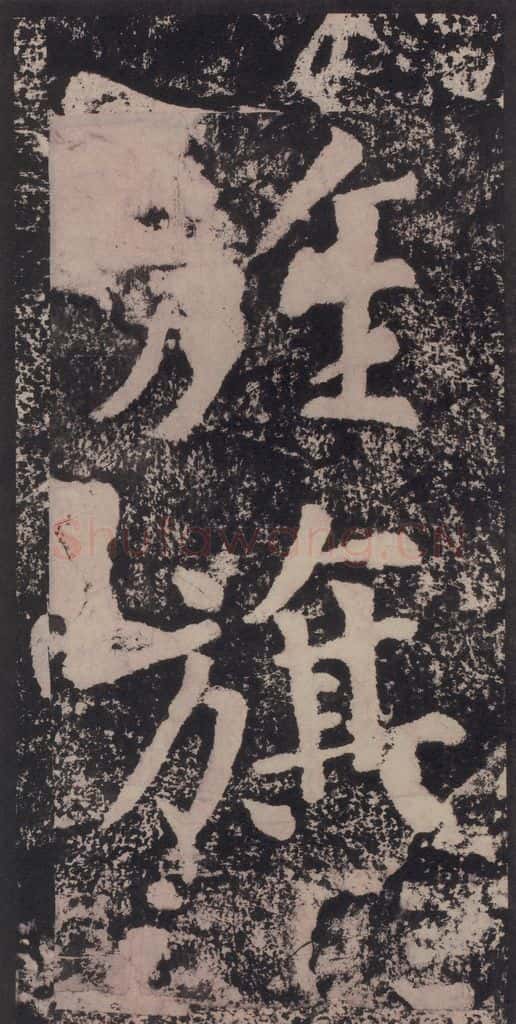 旌
旗
Shufawang.CN